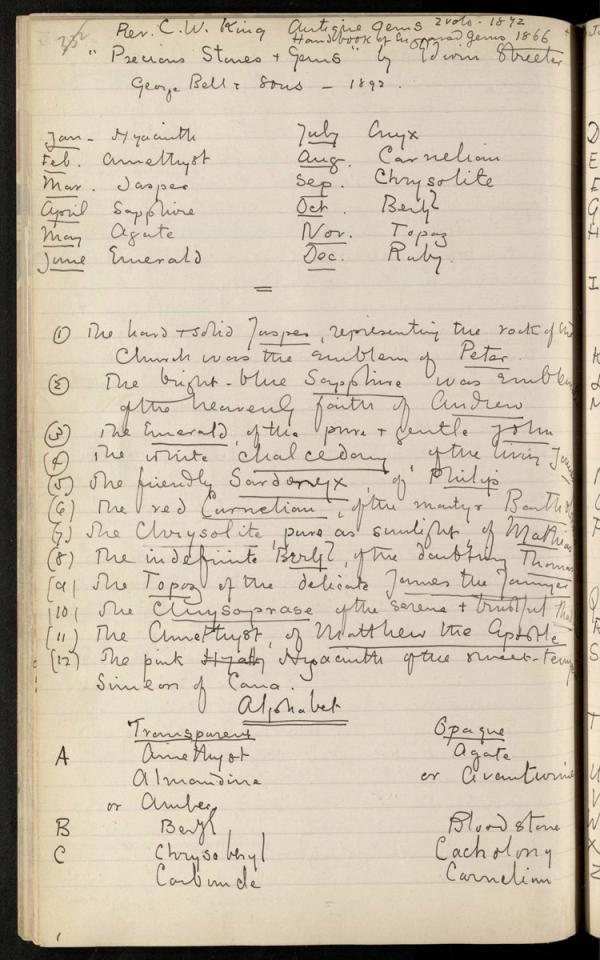 Rev. C. W. King Antique Gems 2 vols. 1872
Handbook of Engraved Gems 1866
"Precious Stones + Gems" by Edwin Streeter
George Bell & Sons - 1892.
Jan - Hyacinth July Onyx
Feb. Amethyst Aug. Carnelian
Mar. Jasper Sep. Chrysolite
April Sapphire Oct. Beryl
May Agate Nov. Topaz
June Emerald Dec. Ruby.
(1) The hard + solid Jasper, representing the rock of the
Church was the emblem of Peter.
(2) The bright-blue Sapphire was emblem
of the heavenly faith of Andrew
(3) The Emerald, of the pure + gentle John
(4) The white Chalcedony of the loving James
(5) The friendly Sardonyx, of Philip
(6) The red Carnelian, of the martyr Barth
(7) The Chrysolite, pure as sunlight, of Mathias
(8) The indefinite Beryl, of the doubting Thomas
(9) The Topaz of the delicate James the Younger
(10) The Chrysoprase of the serene + trustful Tha
(11) The Amethyst, of Matthew the Apostle
(12) The pink Hyacinth of the sweet-temp
Simeon of Cana.
Alphabet
Transparent Opaque
A Amethyst Agate
Almandine or Aventurine
or Amber
B Beryl Bloodstone
C Chrysoberyl Cacholong
Carbuncle Carnelian